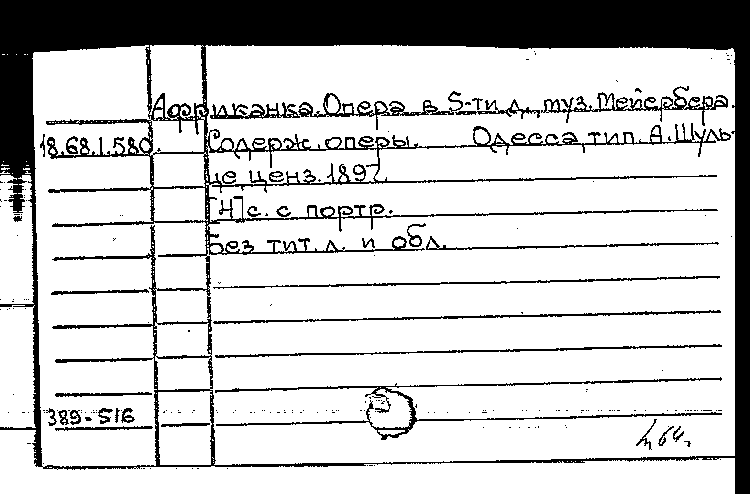 Африканка. Опера в 5-ти д., муз. Мейербера.
18.68.1.580. Содерж. оперы. Одесса, тип. А. Шуль-
це, ценз. 1897.
[4] с. с портр.
Без тит. л. и обл.
389-516
64.